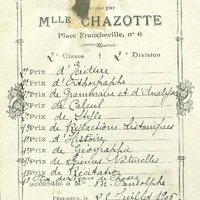 par
MLLE CHAZOTTE
Place Francheville, nº 6
2e Classe 2e Division
Prix d'Ecriture
Prix d'Orthographe
Prix de Grammaire et d'Analyse
Prix de Calcul
Prix de Style
Prix de Rédactions historiques
Prix d'Histoire
Prix de Géographie
Prix de Sciences Naturelles
Prix de Récitation
accordés à M
25 Juillet 1905